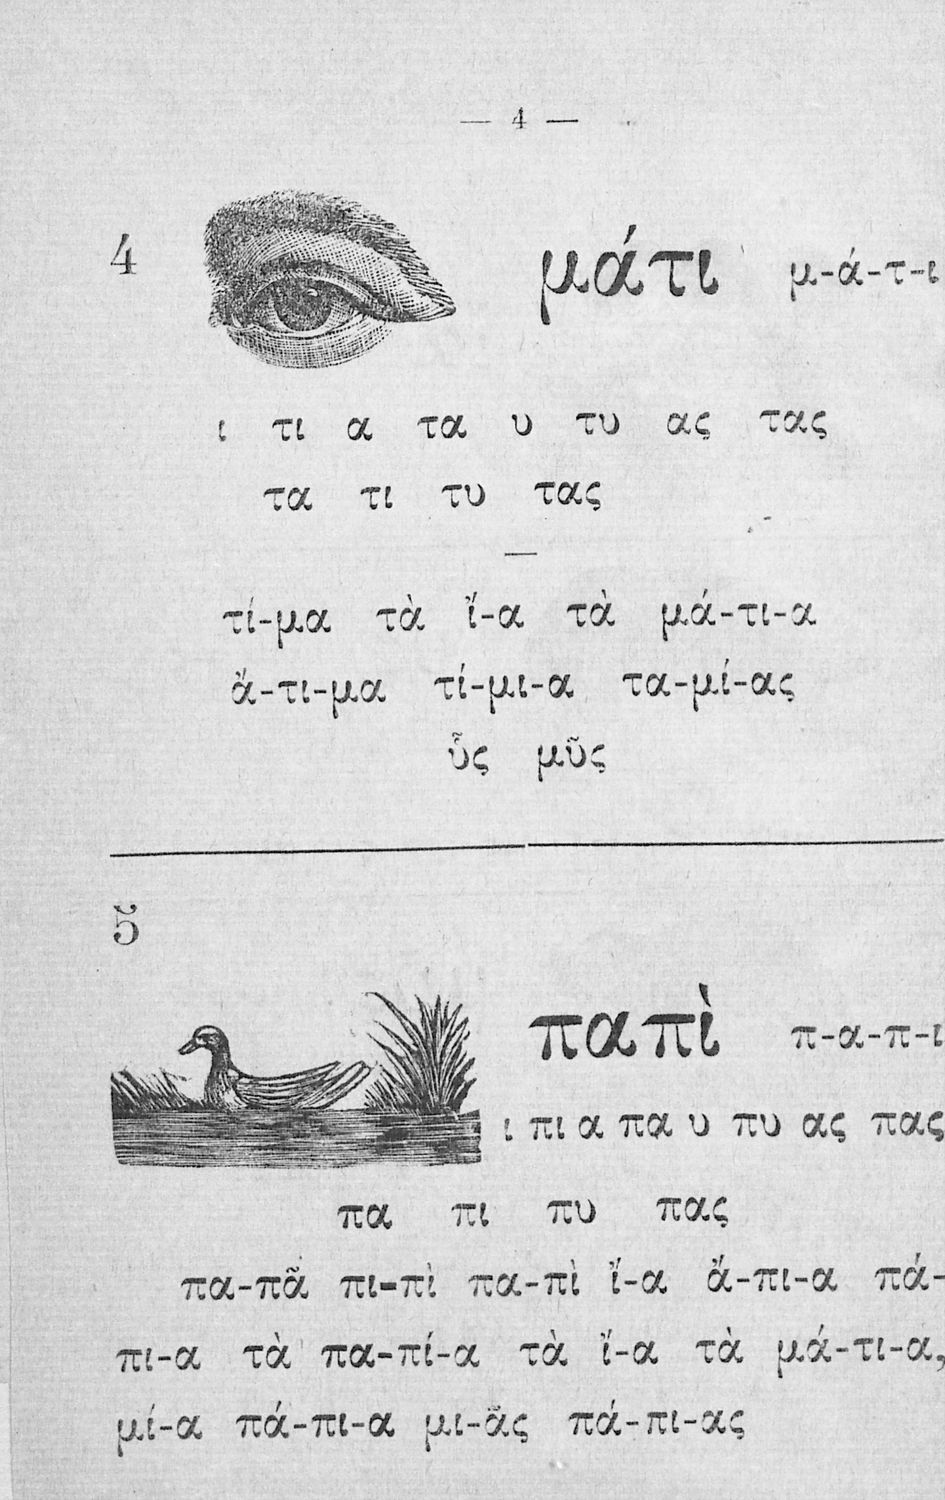 — 4 —
4 μάτι μ-ά-τ-ι
ι τι α τα υ τυ ας τας
τα τι τυ τας
τί-μα τὰ ἴ-α τὰ μά-τι-α
ἄ-τι-μα τί-μι-α τα-μί-ας
ὗς μῦς
5
παπὶ π-α-π-ι
ι πι α πα υ πυ ας πας
πα πι πυ πας
πα-πᾶ πι-πὶ πα-πὶ ἴ-α ἄ-πι-α πά-
πι-α τὰ πα-πί-α τὰ ἴ-α τὰ μά-τι-α,
μί-α πά-πι-α μι-ᾶς πά-πι-ας